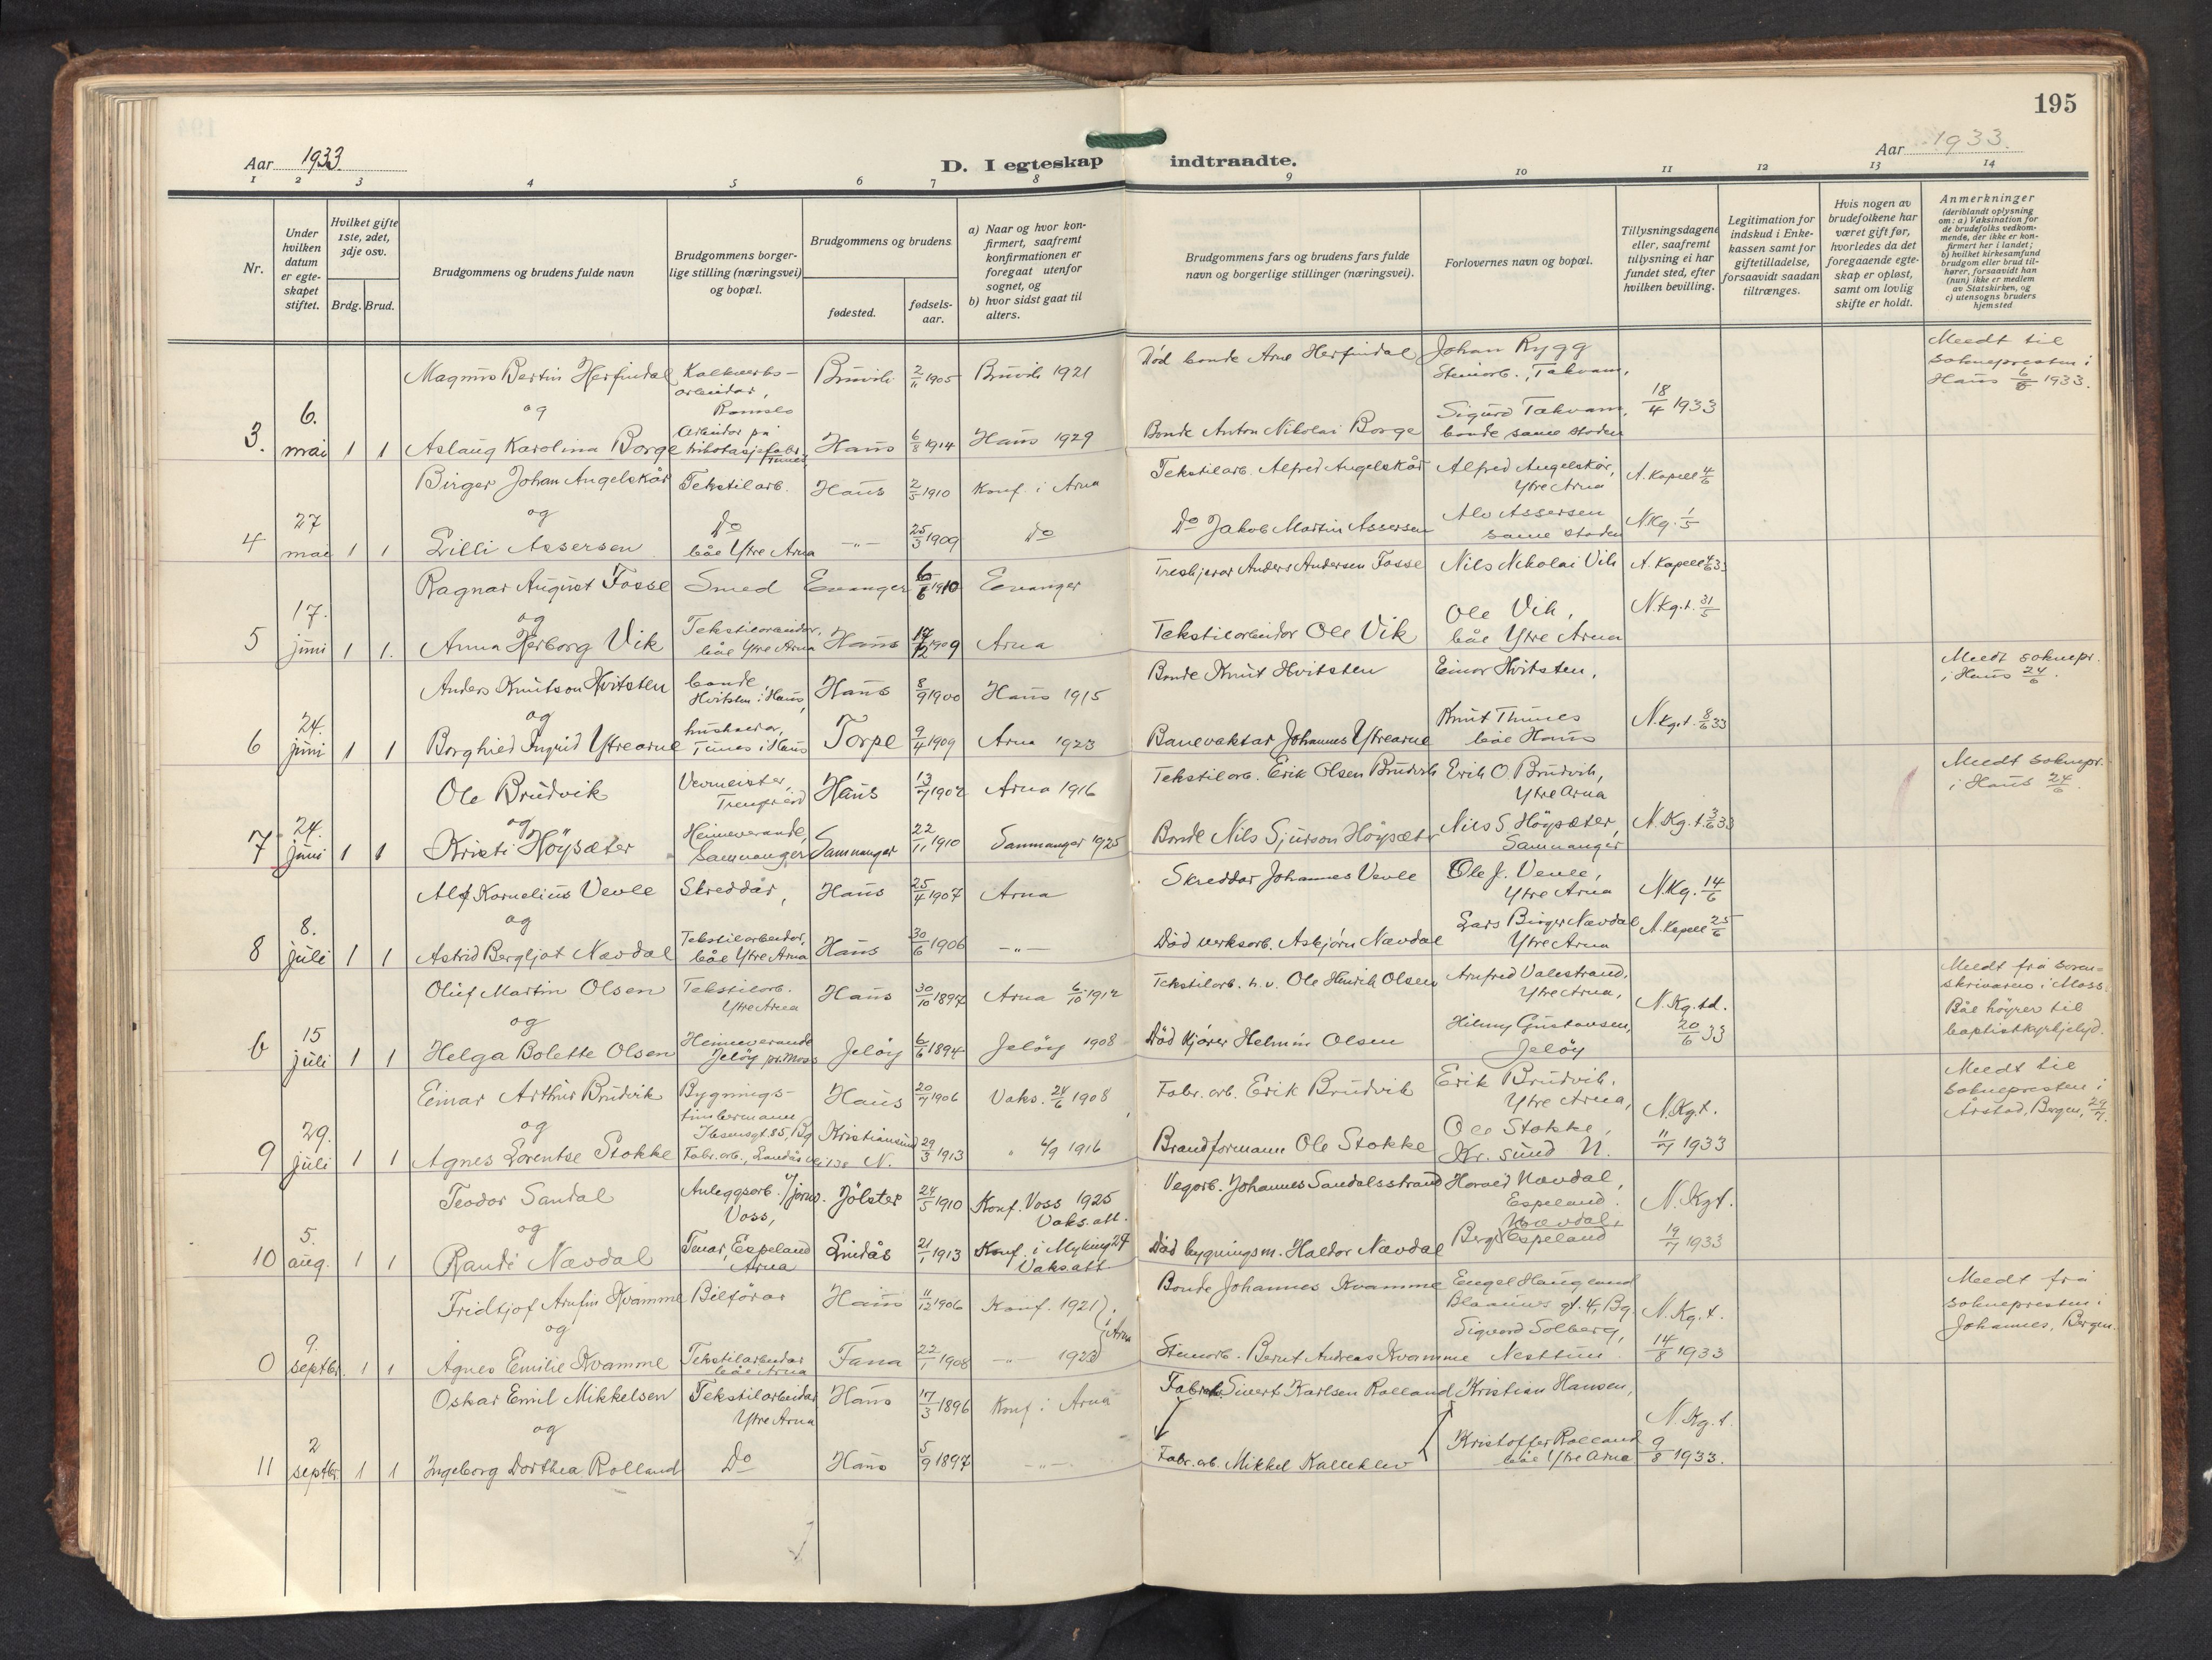 195
Aar 1933.
D. I egteskap indtraadte.
Aar 1933.
1 2 3 4 5 6 7 8 9 10 11 12 13 14
Nr.
Under hvilken datum er egteskapet stiftet.
Hvilket gifte 1ste, 2det, 3dje osv.
Brdg. Brud.
Brudgommens og brudens fulde navn
Brudgommens borgerlige stilling (næringsvei) og bopæl.
Brudgommens og brudens
fødested.
fødselsaar.
a) Naar og hvor konfirmert, saafremt konfirmationen er foregaat utenfor sognet, og
b) hvor sidst gaat til alters.
Brudgommens fars og brudens fars fulde navn og borgerlige stillinger (næringsvei).
Forlovernes navn og bopæl.
Tillysningsdagene eller, saafremt tillysning ei har fundet sted, efter hvilken bevilling.
Legitimation for indskud i Enkekassen samt for giftetilladelse, forsaavidt saadan tiltrænges.
Hvis nogen av brudefolkene har været gift før, hvorledes da det foregaaende egteskap er opløst, samt om lovlig skifte er holdt.
Anmerkninger
(deriblandt oplysning om: a) Vaksination for de brudefolks vedkommende, der ikke er konfirmert her i landet; b) hvilket kirkesamfund brudgom eller brud tilhører, forsaavidt han (hun) ikke er medlem av Statskirken, og c) utensogns bruders hjemsted
Magnus Bertin Herfindal Kalkverks-arbeidar, Romslo Bruvik 2/11 1905 Bruvik 1921 Død bonde Arne Herfindal Johan Rygg Steinarb., Takvam, Meldt til soknepresten i Haus 6/5 1933.
og
3. 6. mai 1 1 Aslaug Karolina Borge Arbeidar på trikotasjefabr. Tunes Haus 6/8 1914 Haus 1929 Bonde Anton Nikolai Borge Sigurd Takvam, bonde same staden 18/4 1933
Birger Johan Angelskår Tekstilarb. Haus 2/5 1910 Konf. i Arna Tekstilarb. Alfred Angelskår Alfred Angelskår, Ytre Arna A. Kapell 4/6
og
4 27 mai 1 1 Lilli Assersen Do båe Ytre Arna -"- 25/3 1909 Do Do Jakob Martin Assersen Alv Assersen same staden N.Kg. 1/5
Ragnar August Fosse Smed Evanger 6/6 1910 Evanger Treskjerar Anders Andersen Fosse Nils Nikolai Vik A. Kapell 4/6 33
og
5 17. juni 1 1. Anna Herborg Vik Tekstilarbeidar, båe Ytre Arna Haus 17/12 1909 Arna Tekstilarbeidar Ole Vik Ole Vik, båe Ytre Arna N.Kg.t. 31/5
Anders Knutson Hvitsten bonde Hvitsten i Haus, Haus 8/9 1900 Haus 1915 Bonde Knut Hvitsten Einar Hvitsten, Meldt soknepr. i Haus 24/6.
og
6 24. juni 1 1 Borghild Ingrid Ytrearne hushaldar, Tunes i Haus Torpe 9/4 1909 Arna 1923 Banevaktar Johannes Ytrearne Knut Thunes båe Haus N.Kg.t. 8/6 33
Ole Brudvik Vevmeister, Trengereid Haus 13/7 1902 Arna 1916 Tekstilarb. Erik Olsen Brudvik Erik O. Brudvik, Ytre Arna Meldt soknepr. i Haus 24/6.
og
7 24. juni 1 1 Kristi Höysæter Heimeverande, Samnanger Samnanger 22/11 1910 Samnanger 1925 Bonde Nils Sjurson Höysæter Nils S. Höysæter, Samnanger N.Kg.t. 3/6 33
Alf Kornelius Vevle Skreddar, Haus 25/4 1907 Arna Skreddar Johannes Vevle Ole J. Vevle, Ytre Arna N.Kg. 14/6
og
8 8. juli 1 1 Astrid Bergljot Nævdal Tekstilarbeidar, båe Ytre Arna Haus 30/6 1906 -"- Død verksarb. Askjørn Nævdal Lars Birger Nævdal Ytre Arna A. Kapell 25/6
Oluf Martin Olsen Tekstilarb. Ytre Arna Haus 30/10 1897 Arna 6/10 1912 Tekstilarb. h.v. Ole Henrik Olsen Arnfred Valestrand, Ytre Arna, Meldt frå sorenskrivaren i Moss. Båe höyrer til baptistkyrkjelyd.
og
b 15 juli 1 1 Helga Bolette Olsen Heimeverande Jelöy pr. Moss Jelöy 6/6 1894 Jelöy 1908 Død kjører Helmin Olsen Hilmy Gustavsen, Jelöy N.Kg.td. 20/6 33
Einar Arthur Brudvik Bygnings-timbermann Ibsensgt. 85, Bg. Haus 20/7 1906 Vaks. 24/6 1908 Fabr. arb. Erik Brudvik Erik Brudvik, Ytre Arna, Meldt til soknepresten i Årstad, Bergen, 29/7.
og
9 29. juli 1 1 Agnes Lorentse Stokke Fabr. arb., Landåsvei 138 Kristiansund N. 29/3 1913 " 4/9 1916 Brandformann Ole Stokke Ole Stokke, Kr. sund N. N.Kg.t. 11/7 1933
Teodor Sandal Anleggsarb. v/jernv. Voss, Jölster 24/5 1910 Konf. Voss 1925 Vaks. att. Vegarb. Johannes Sandalsstrand Harald Nævdal, Espeland.
og
10 5. aug. 1 1 Randi Nævdal Tenar, Espeland Arna Lindås 21/1 1913 Konf. i Myking 27 Vaks. att. Død bygningsm. Haldor Nævdal Berg Nævdal, Espeland N.Kgt. 19/7 1933
Fridtjof Arnfin Kvamme Bilförar Haus 11/12 1906 Konf. 1921 Bonde Johannes Kvamme Engel Haugland Blaauws gt. 4, Bg. Meldt frå soknepresten i Johannes, Bergen.
og i Arna
0 9. septbr. 1 1 Agnes Emilie Kvamme Tekstilarbeidar båe Arna Fana 22/1 1908 -"- 1923 Steinarb. Bernt Andreas Kvamme Sigvard Solberg, Nesttun N.Kg.t. 14/8 1933
Oskar Emil Mikkelsen Tekstilarbeidar Ytre Arna Haus 17/3 1896 Konf. i Arna Fabrarb. Sivert Karlsen Rolland Kristian Hansen,
og
11 2 septbr 1 1 Ingeborg Dorthea Rolland Do Haus 5/9 1897 -"- Fabr. arb. Mikkel Kalleklev Kristoffer Rolland båe Ytre Arna N.Kg.t. 9/8 1933.